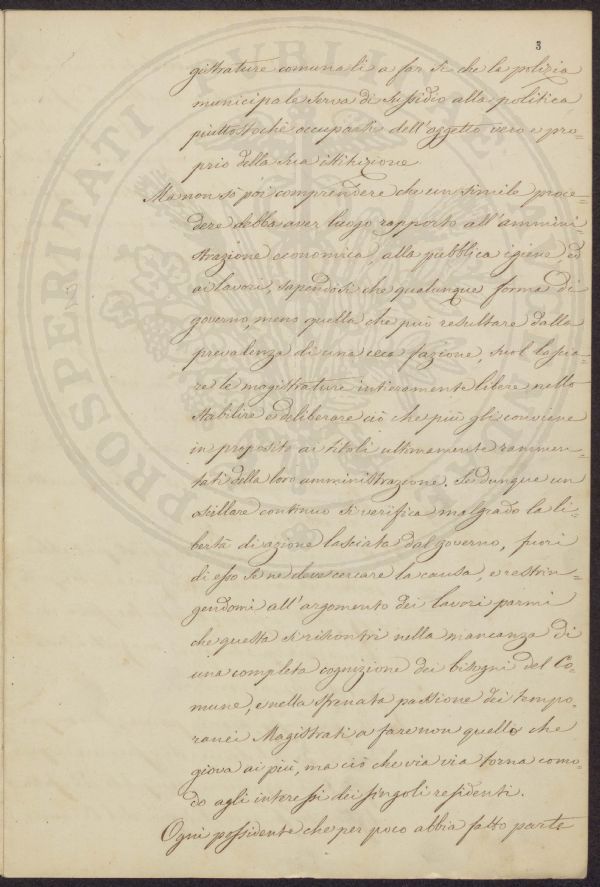 3
gistrature comunali a far sì che la polizia
municipale serva di sussidio alla politica
piuttostochè occuparsi dell'oggetto vero e pro=
prio della sua istituzione.
Ma non so poi comprendere che un simile proce=
dere debba aver luogo rapporto all'ammini=
strazione economica, alla pubblica igiene, ed
ai lavori, sapendosi che qualunque forma di
governo, meno quella che può resultare dalla
prevalenza di una cieca fazione, suol lascia=
re le magistrature intieramente libere nello
stabilire e deliberare ciò che più gli conviene
in proposito ai titoli ultimamente rammen=
tati della loro amministrazione. Se dunque un
oscillare continuo si verifica malgrado la li=
bertà di azione lasciata dal governo, fuori
di esso se ne deve cercare la causa, e restrin=
gendomi all'argomento dei lavori parmi
che questa si riscontri nella mancanza di
una completa cognizione dei bisogni del Co=
mune, e nella sfrenata passione dei tempo=
ranei Magistrati a fare non quello che
giova ai più, ma ciò che via via torna como=
do agli interessi dei singoli residenti.
Ogni possidente che per poco abbia fatto parte
PROSPERITATI PUBLICAE